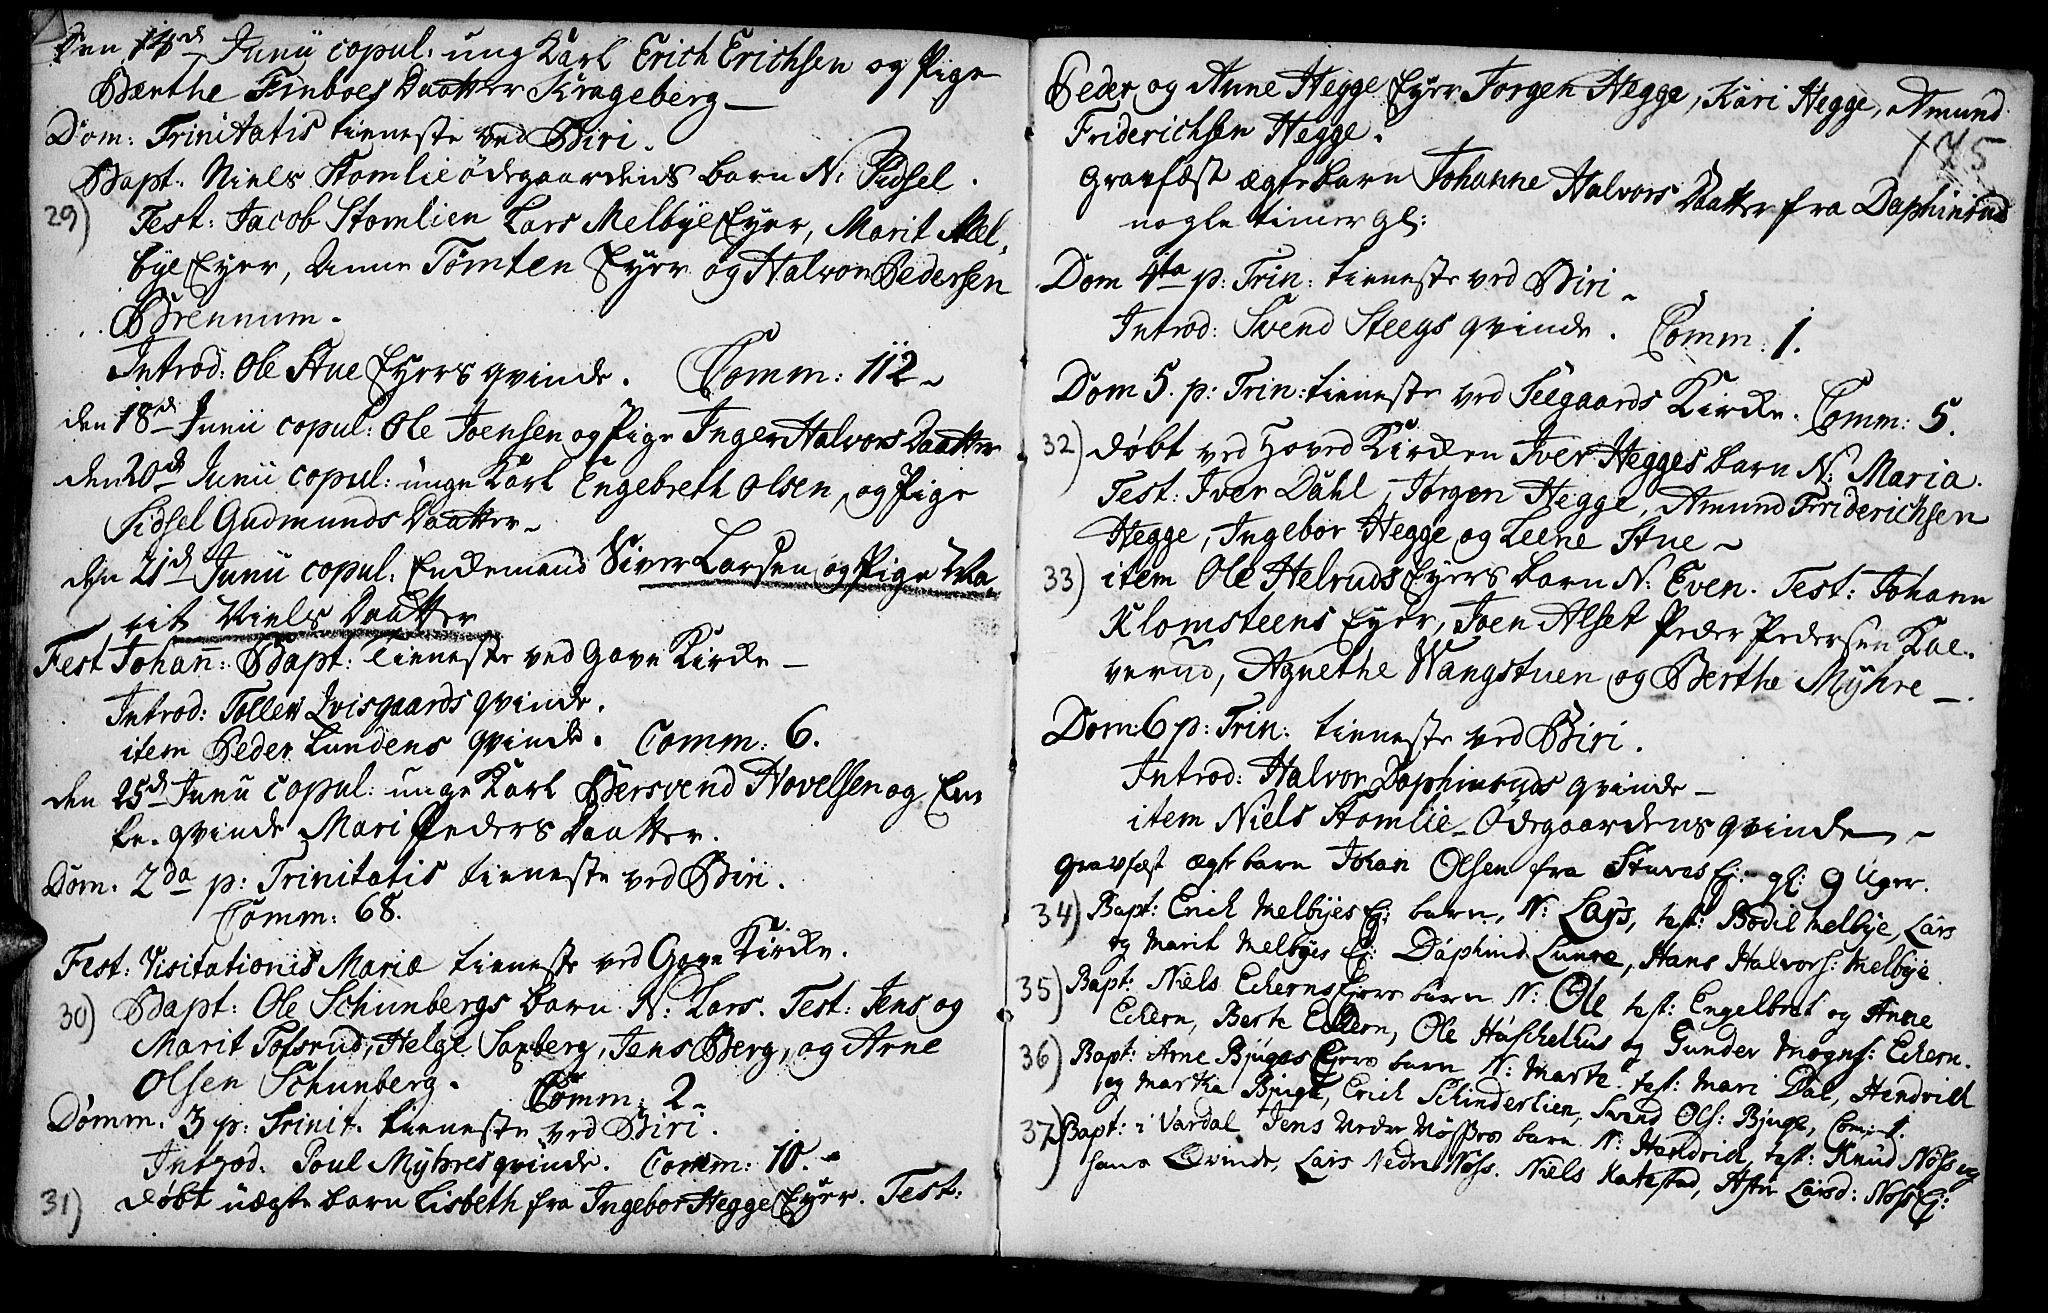 Den 14d Junii copul: ung Karl Erich Erichsen og Pige
Berthe Finboes Daatter Krageberg
Dom: Trinitatis tieneste ved Biri.
Bapt: Niels Stomlieödegaardens barn N: Sidsel.
29) Test: Jacob Stomlien Lars Melbye Eyer, Marit Mel-
bye Eyer, Anne Tömten Eyer og Halvor Pedersen
Brennum.
Introd: Ole Stue Eyers qvinde. Comm: 112
den 18d Junii copul: Ole Joensen og Pige Inger Halvors Daatter
den 20d Junii copul: unge Karl Engebreth Olsen, og Pige
Sidsel Gudmunds Daatter
den 21d Junii copul: Enkemand Siver Larsen og Pige Ma-
rit Niels Daatter
Fest Johann: Bapt: tieneste ved Gave Kirke
Introd: Tollew Qvisgaards qvinde.
item Peder Lundens qvinde. Comm: 6.
den 25d Junii copul: unge Karl Bersvend Hovelsen og En-
ke-qvinde Mari Peders Daatter.
Dom. 2da p: Trinitatis tieneste ved Biri.
Comm: 68.
Fest: Visitationis Mariæ tieneste ved Gave Kirke.
30) Bapt: Ole Schunbergs barn N: Lars. Test: Jens og
Marit Tofsrud, Helge Saxberg, Jens Berg, og Arne
Olsen Schunberg. Comm: 2
Domm. 3 p: Trinit: tieneste ved Biri.
Introd: Poul Myhres qvinde. Comm: 10.
31) döbt uægte barn Lisbeth fra Ingebor Hegge Eyer. Test:
Peder og Anne Hegge Eyer Jorgen Hegge, Kari Hegge, Amund
Friderichsen Hegge.
175
gravfæst ægte barn Johanne Halvors Daatter fra Daphinrud
nogle timer gl:
Dom 4ta p: Trin: tieneste ved Biri
Introd: Svend Steegs qvinde. Comm: 1.
Dom 5. p: Trin: tieneste ved Seegaards Kirke. Comm: 5.
32) döbt ved Hoved Kirken Iver Hegges barn N: Maria.
Test: Iver Dahl, Jörgen Hegge, Amund Friderichsen
Hegge, Ingebor Hegge og Leene Stue
33) item Ole Helruds Eyers barn N: Even. Test: Johann
Klomsteens Eyer, Joen Alset Peder Pedersen Kal-
verud, Agnethe Wangstuen og Berthe Myhre
Dom: 6 p: Trin: tieneste ved Biri.
Introd: Halvor Daphinruds qvinde
item Niels Stomlie-Ödegaardens qvinde
gravfæst ægte barn Johan Olsen fra Stuves Ej: gl: 9 Uger.
34) Bapt: Erich Melbyes Ej: barn, N: Lars, test: Bodil Melbye, Lars
og Marit Melbyes Ej: Daphind Lunne, Hans Halvors: Melbye.
35) Bapt: Niels Eckerns Ejers barn N: Ole test: Engelbret og Anne
Eckern, Berte Eckern, Ole Huschelhus og Gunder Mogns: Eckern.
36) Bapt: Arne Bjuges Ejers barn N: Marte. test: Mari Dal, Hendrich
og Martha Bjuge, Erich Schinderlien, Svend Ols: Bjuge, Com: 1.
37) Bapt: i Vardal Jens Neder Nössers barn N: Hendrich, test: Knud Nöss og
hans Qvinde, Lars Nedre Nöss. Niels Katestad, Astri Larsd: Nöss Ej: